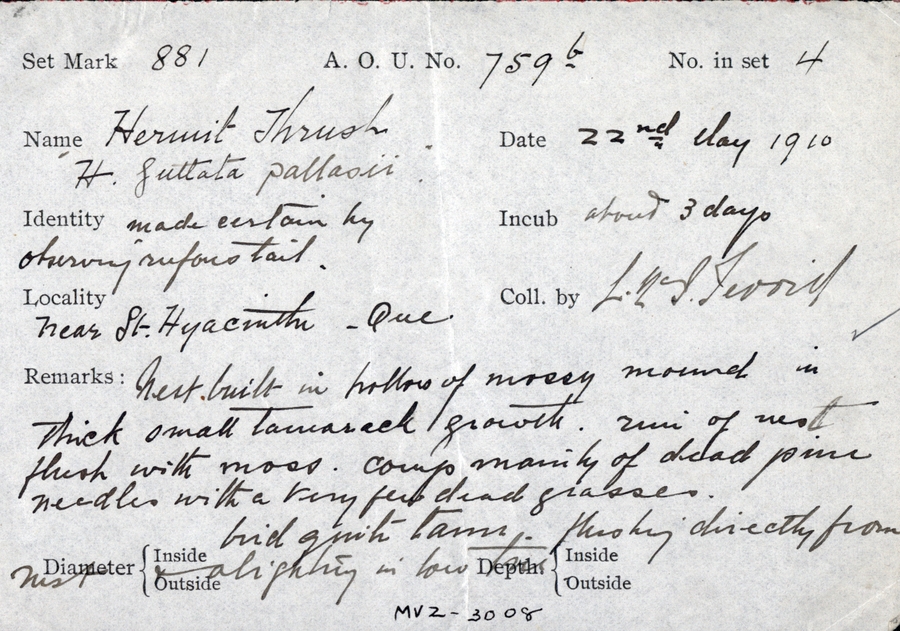 Set Mark 881 A. O. U. No. 759b No. in set 4
Name Hermit Thrush Date 22nd May 1910
"H. guttata pallasii"
Identity made certain by Incub about 3 days
observing rufous tail.
Locality Coll. by L. McI.
near St. Hyacinthe - Que.
Remarks: Nest built in hollow of mossy mound in
thick small tamarack growth. rim of nest
flush with moss. comp mainly of dead pine
needles with a very few dead grasses.
bird quite tame. flushing directly from
nest & alighting in low
Diameter { Inside Depth { Inside
Outside Outside
MVZ-3008